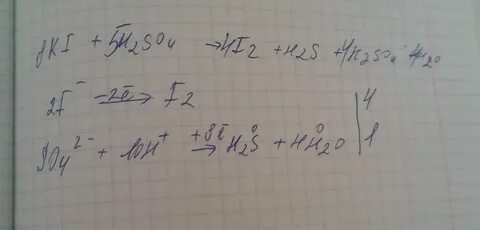 8KI + 5H2SO4 → 4I2 + H2S + 4K2SO4 + 4H2O
2I⁻ −2ē → I2 | 4
SO4²⁻ + 10H⁺ +8ē → H2S⁰ + 4H2O⁰ | 1